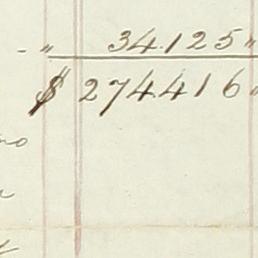 - " 34.125 "
$ 274416 "